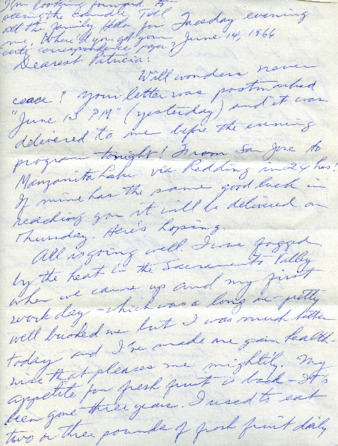 I'm looking forward to
seeing the                 Tell
all the family Hello for Tuesday evening
me. Where'd you get your         June 14, 1966
cute correspondence paper?
Dearest Patricia:
Will wonders never
cease! Your letter was postmarked
"June 13 PM" (yesterday) and it was
delivered to me before the evening
program tonight! From San Jose to
Manzanita Lake via Redding in 24 hrs!
If mine has the same good luck in
reaching you it will be delivered on
Thursday. Here's hoping.
All is going well. I was fogged
by the heat in the Sacramento Valley
when we came up and my first
work day - which was a long one - pretty
well bushed me but I was much better
today and I've made me gain health-
wise that pleases me mightily. My
appetite for fresh fruit is back - It's
been gone three years. I used to eat
two or three pounds of fresh fruit daily